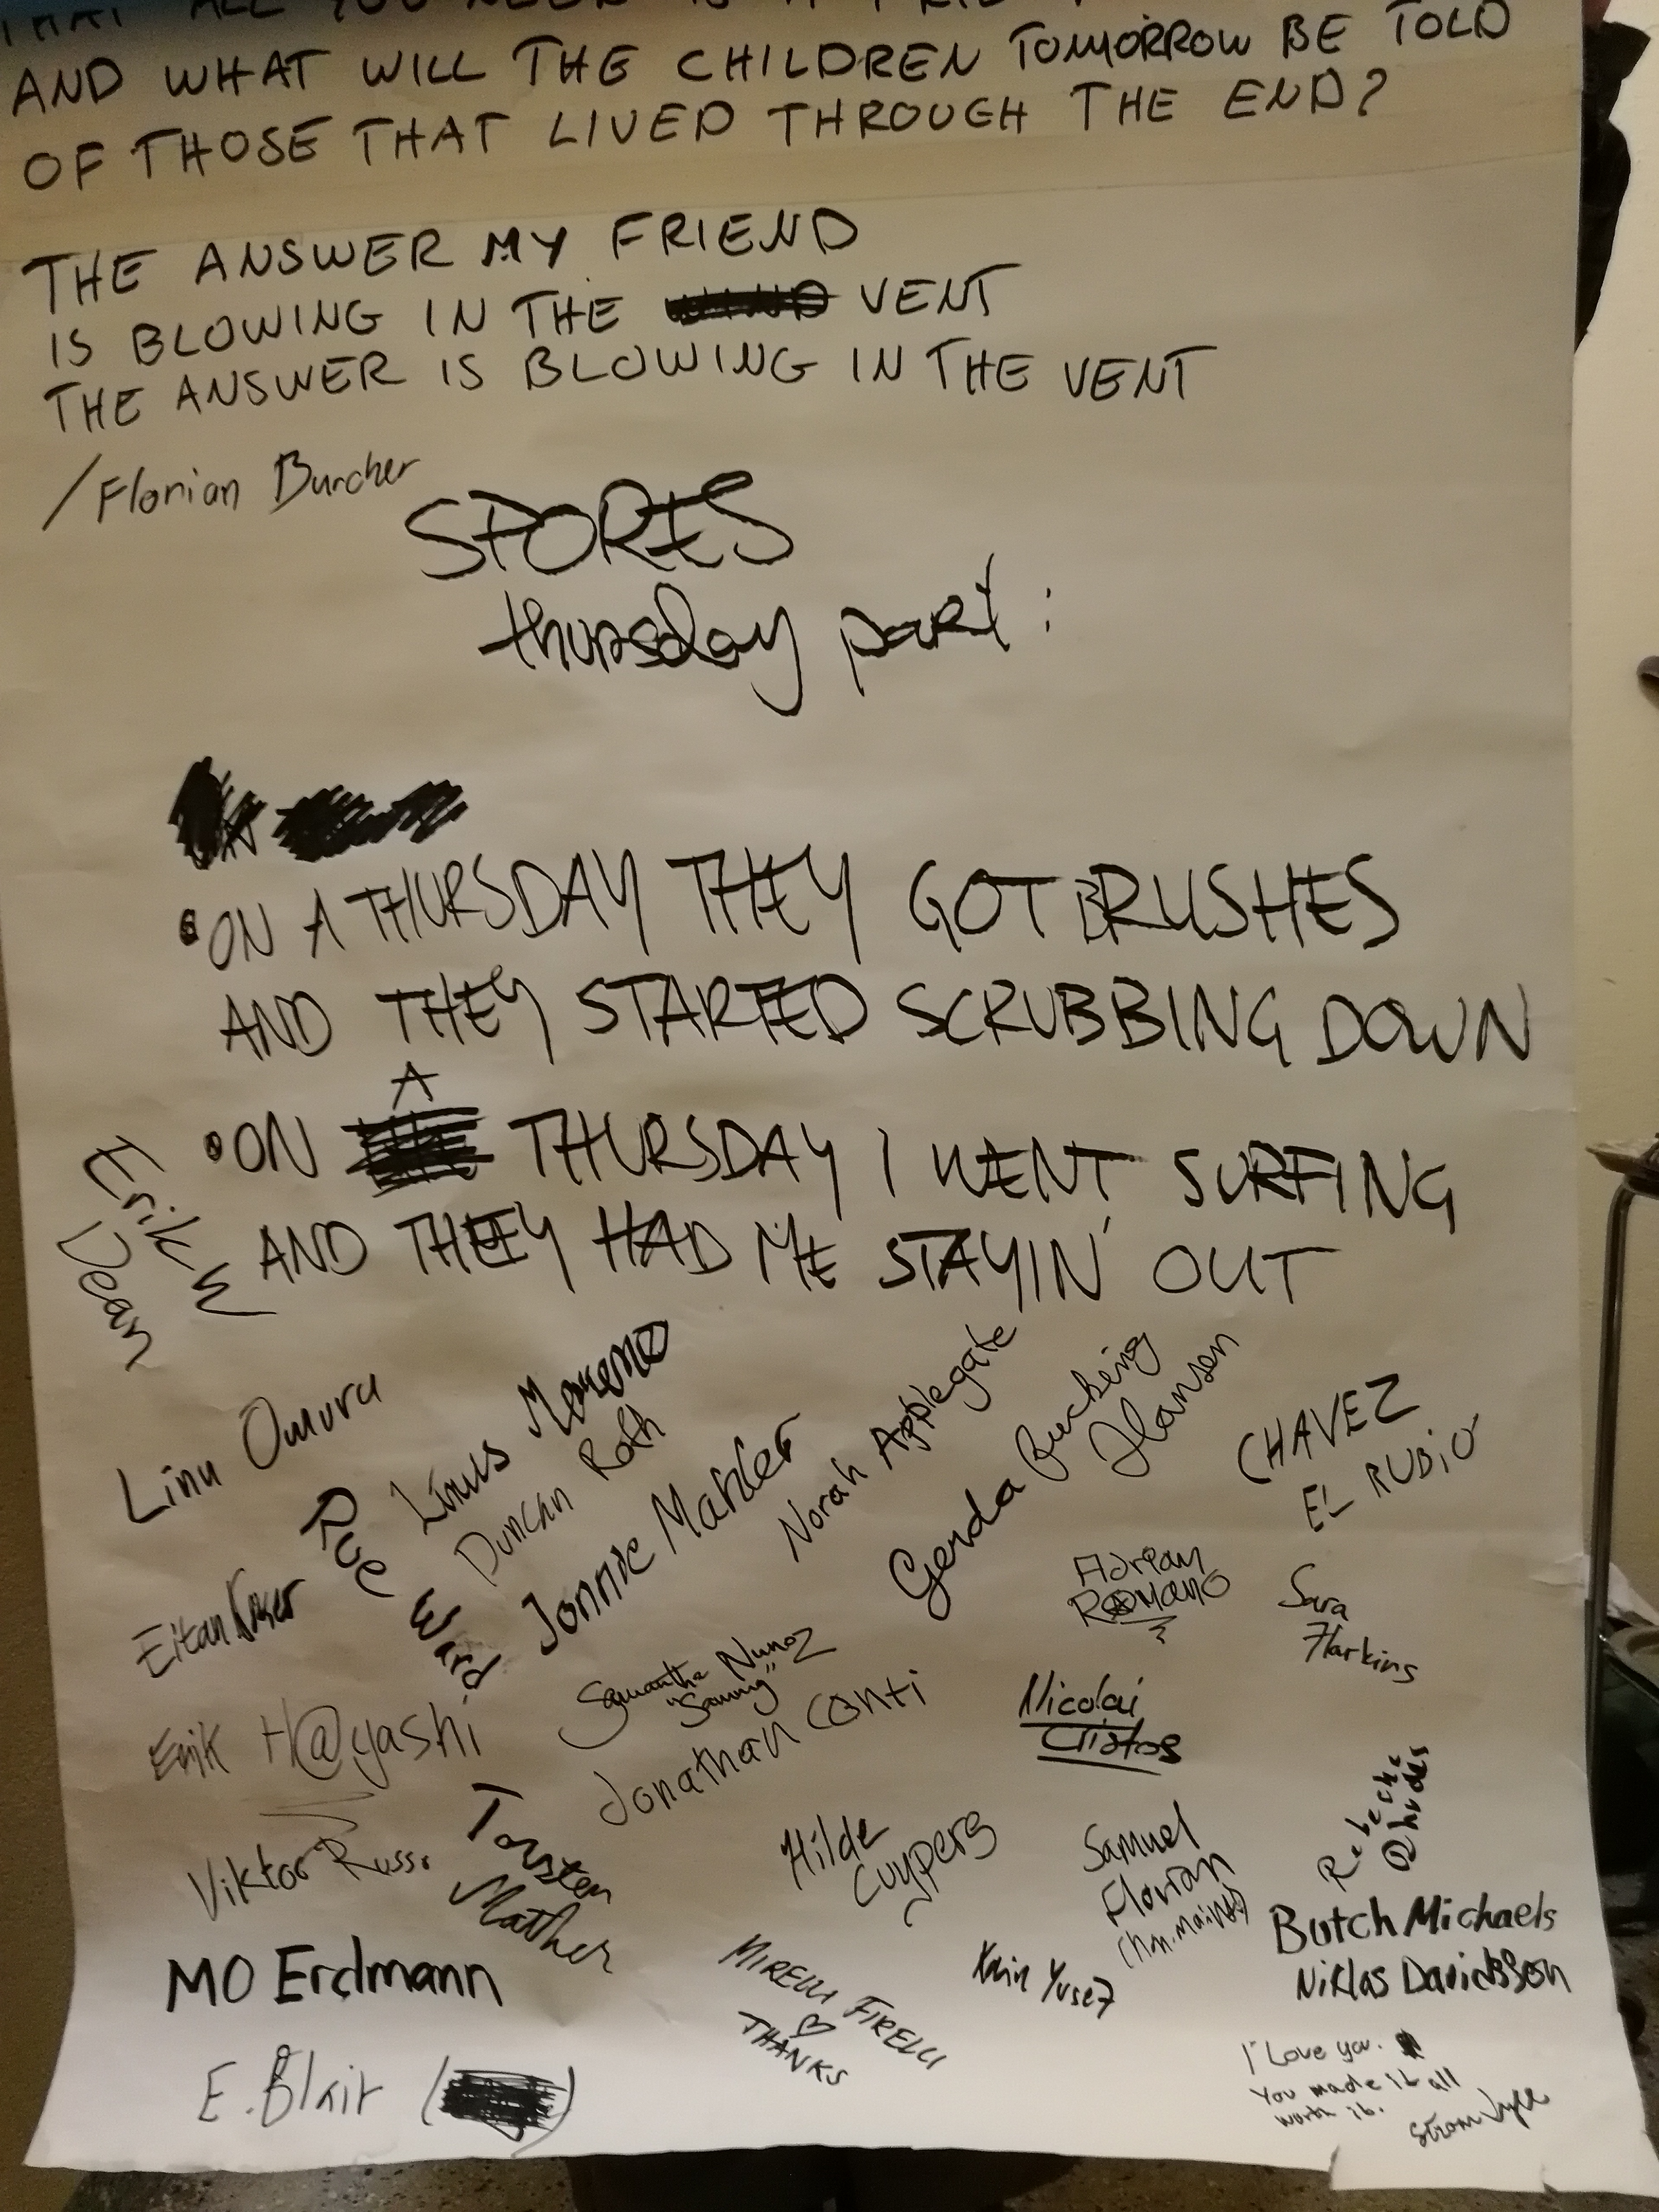 THAT ALL YOU NEED IS A
AND WHAT WILL THE CHILDREN TOMORROW BE TOLD
OF THOSE THAT LIVED THROUGH THE END?
THE ANSWER MY FRIEND
IS BLOWING IN THE VENT
THE ANSWER IS BLOWING IN THE VENT
/Florian Burcher
SPORES
thursday part:
ON A THURSDAY THEY GOT BRUSHES
AND THEY STARTED SCRUBBING DOWN
A
ON THURSDAY I WENT SURFING
AND THEY HAD ME STAYIN' OUT
Erik W
Dean
Linu Omuru
Linus Moreno
Duncan Roth
Rue Ward
Jonnie Mahler
Norah Applegate
Gerda Bucking
Hansen
CHAVEZ
EL RUBIO
Eitan
Adrian
Romano
Sara
Harkins
Samantha Nunoz
"Sammy"
Jonathan Conti
Nicolai
Erik H@yashi
Viktor Russo
Torsten
Mather
Hilde
Cuypers
Samuel
Florian
Rebecka
Rhodes
Butch Michaels
Niklas Davidsson
MO Erdmann
MIRELLI FIRELLI
♡
THANKS
E. Blair
I Love you.
You made it all
worth it.